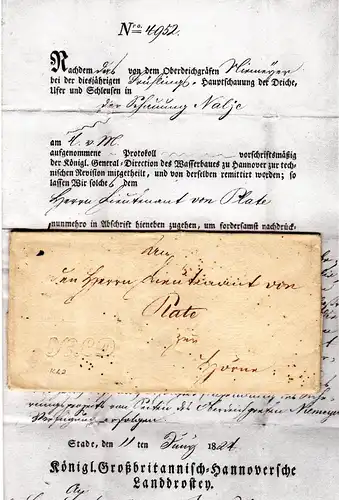 Nro. 4952.
Nachdem das von dem Oberdeichgräfen Niemeyer
bei der diesjährigen Frühlings- Hauptschauung der Deiche,
Ufer und Schleusen in
der Schauung Nalje
am 4. v. M.
aufgenommene Protokoll vorschriftsmäßig
der Königl. General-Direction des Wasserbaues zu Hannover zur tech-
nischen Revision mitgetheilt, und von derselben remittirt worden; so
lassen Wir solches dem
Herrn Lieutenant von Plate
nunmehro in Abschrift hieneben zugehen, um fordersamst nachdrück-
An
den Herrn Lieutenant von
Plate
zu
Hörne
STADE
von Seiten des Niemeyer
erfolgen
Stade, den 11ten Juny 1824.
Königl. Großbritannisch-Hannoversche
Landdrostey.